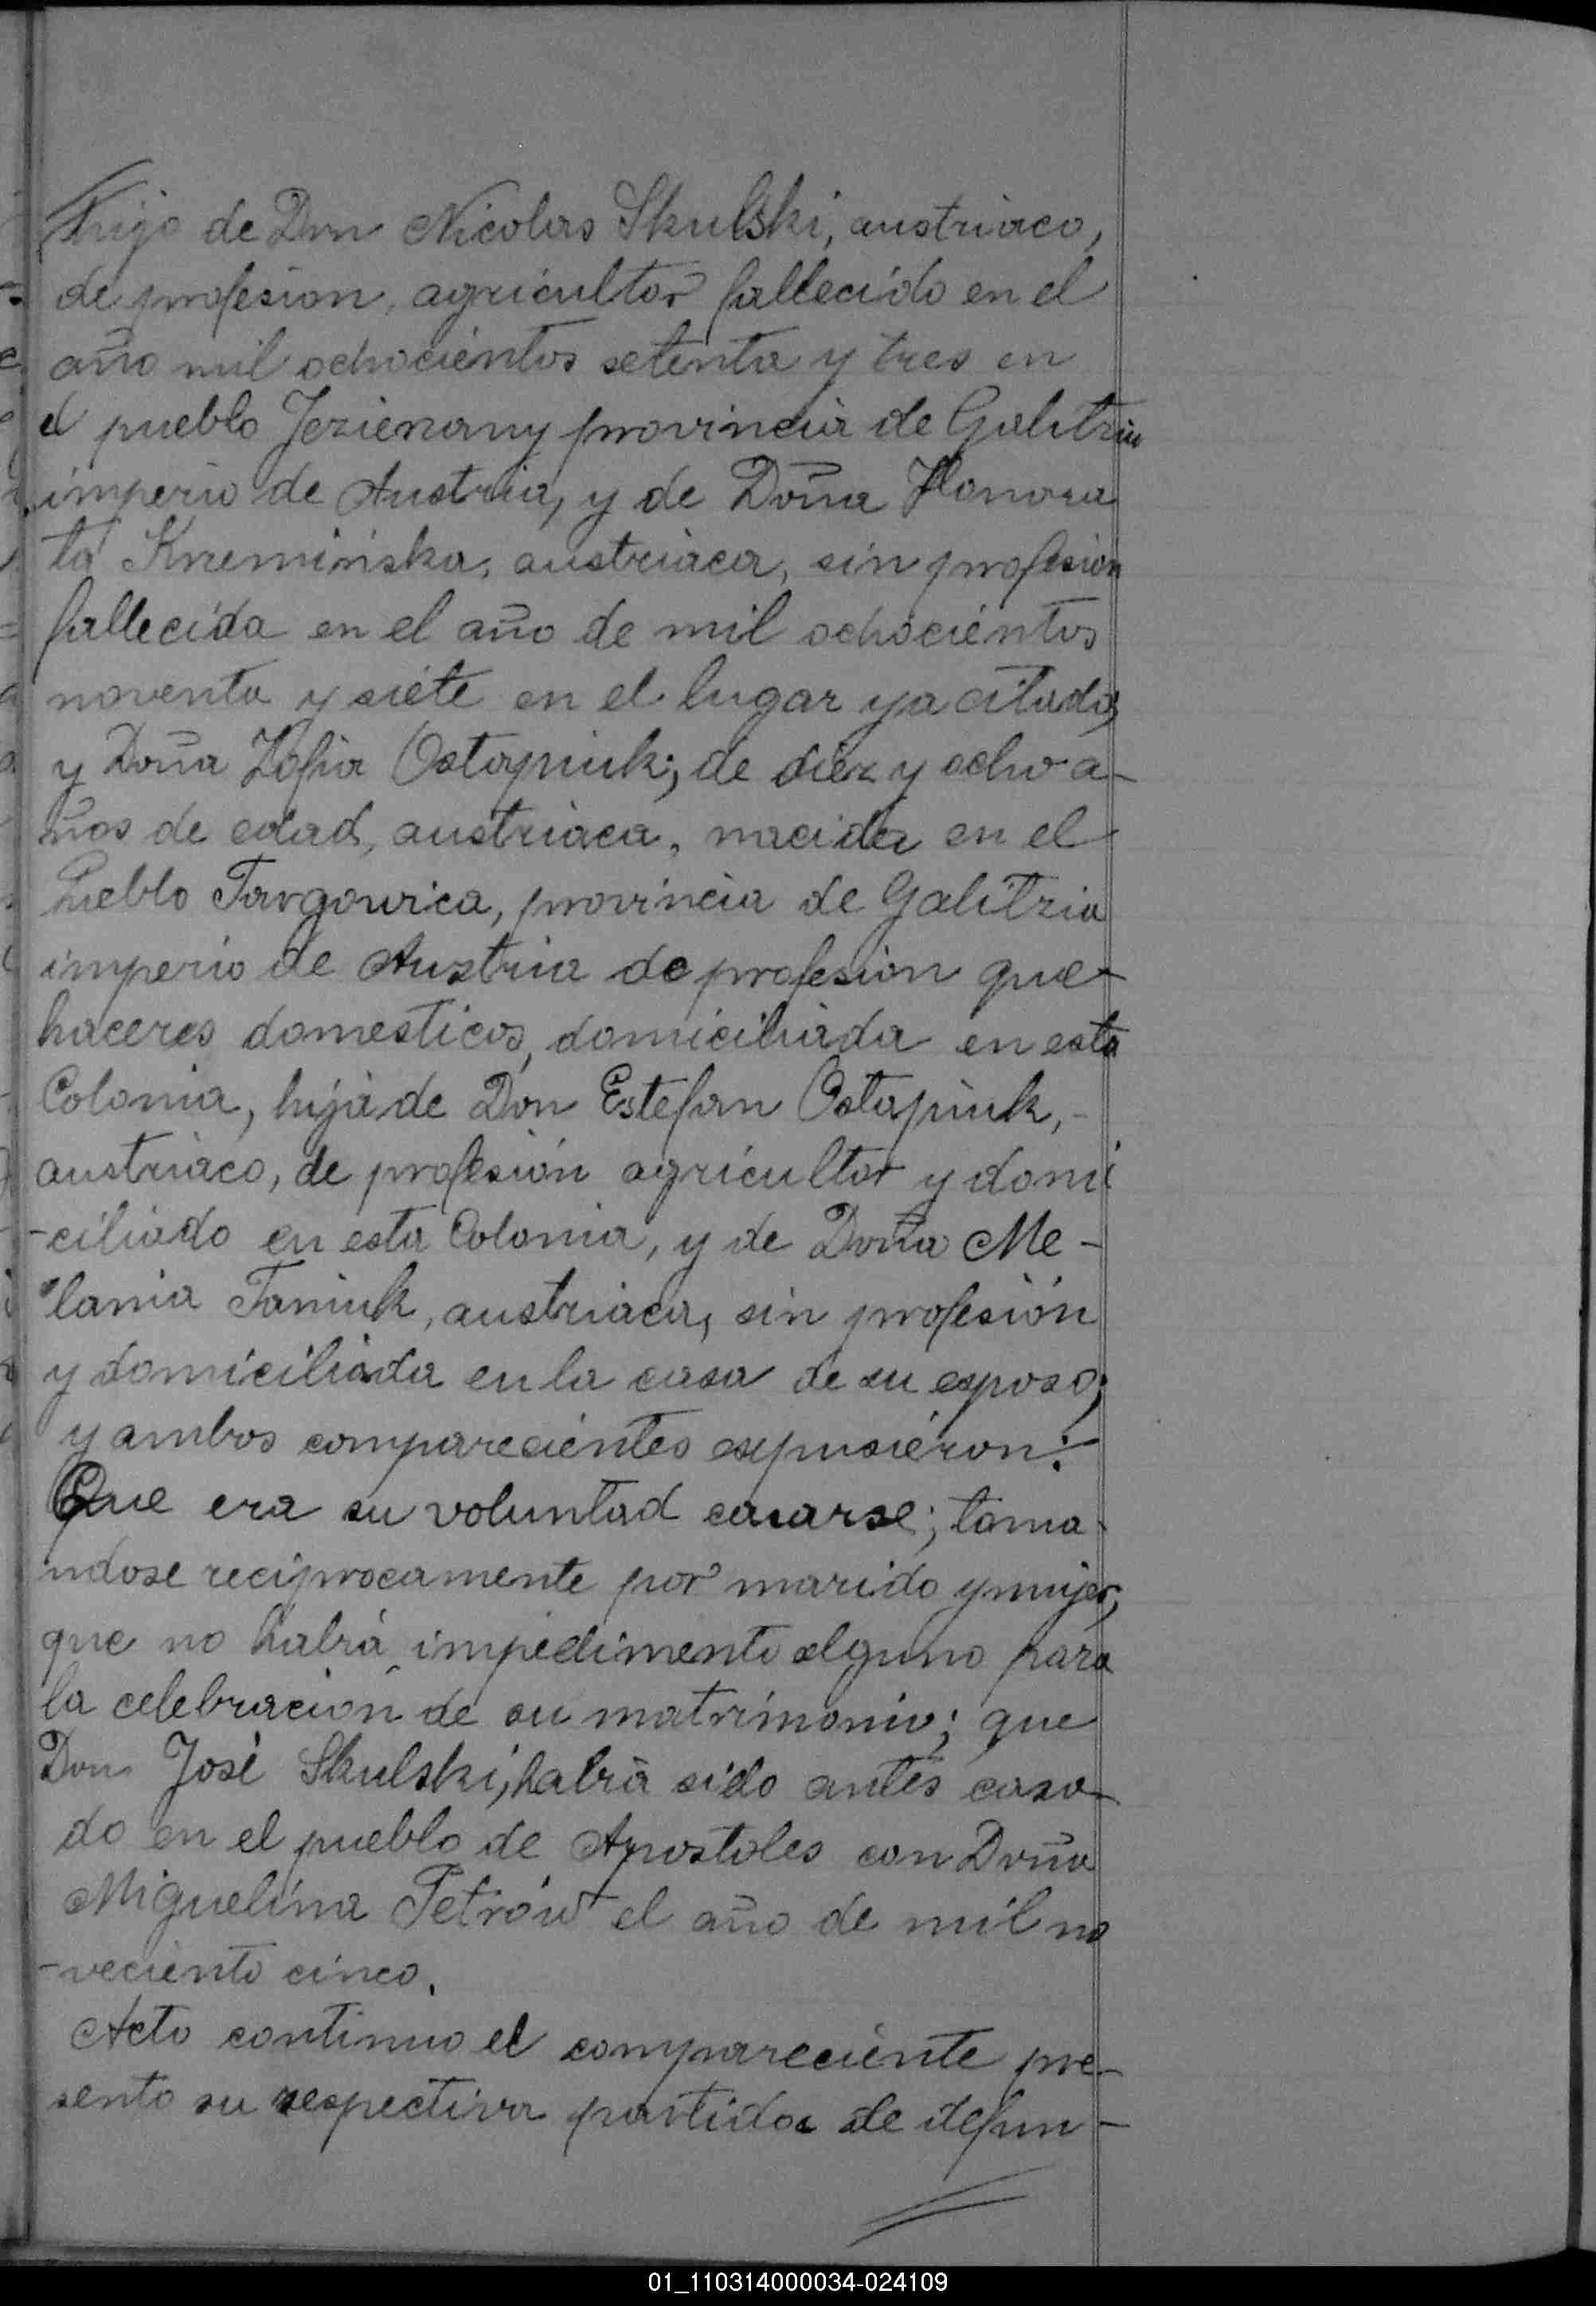 hijo de Don Nicolas Skulski, austriaco,
de profesion, agricultor fallecido en el
año mil ochocientos setenta y tres en
el pueblo Jezierzany provincia de Galitzia
imperio de Austria, y de Doña Honora
ta Krzemińska, austriaca, sin profesion
fallecida en el año de mil ochocientos
noventa y siete en el lugar ya citado,
y Doña Zofia Ostapiuk; de diez y ocho a-
ños de edad, austriaca, nacida en el
Pueblo Targowica, provincia de Galitzia
imperio de Austria de profesion que-
haceres domesticos, domiciliada en esta
Colonia, hija de Don Estefan Ostapiuk,-
austriaco, de profesión agricultor y domi
-ciliado en esta Colonia, y de Doña Me-
lania Taniuk, austriaca, sin profesión
y domiciliada en la casa de su esposo;
y ambos comparecientes expusieron:-
Que era su voluntad casarse; toma-
ndose reciprocamente por marido y mujer,
que no habrá impedimento alguno para
la celebración de su matrimonio; que
Don José Skulski, habrá sido antes casa-
do en el pueblo de Apostoles con Doña
Miguelina Petrów el año de mil no
-veciento cinco.
Acto continuo el compareciente pre-
sento su respectiva partida de defun-
01_110314000034-024109